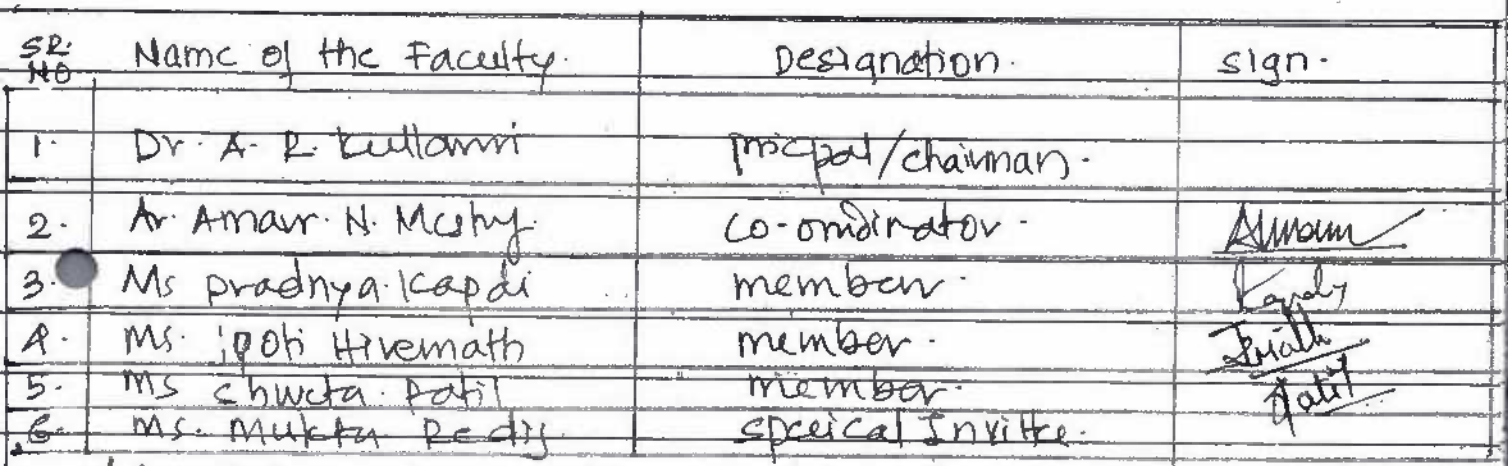 SR. NO Name of the Faculty. Designation. sign.
1. Dr. A. R. pricpal/chairman.
2. Ar. Amar. N. co-ordinator.
3. Ms pradnya. Kapdi member.
4. Ms. jyoti Hiremath member.
5. Ms Shweta. Patil member. Patil
6. Ms. Mukta Redij speical Invitee.